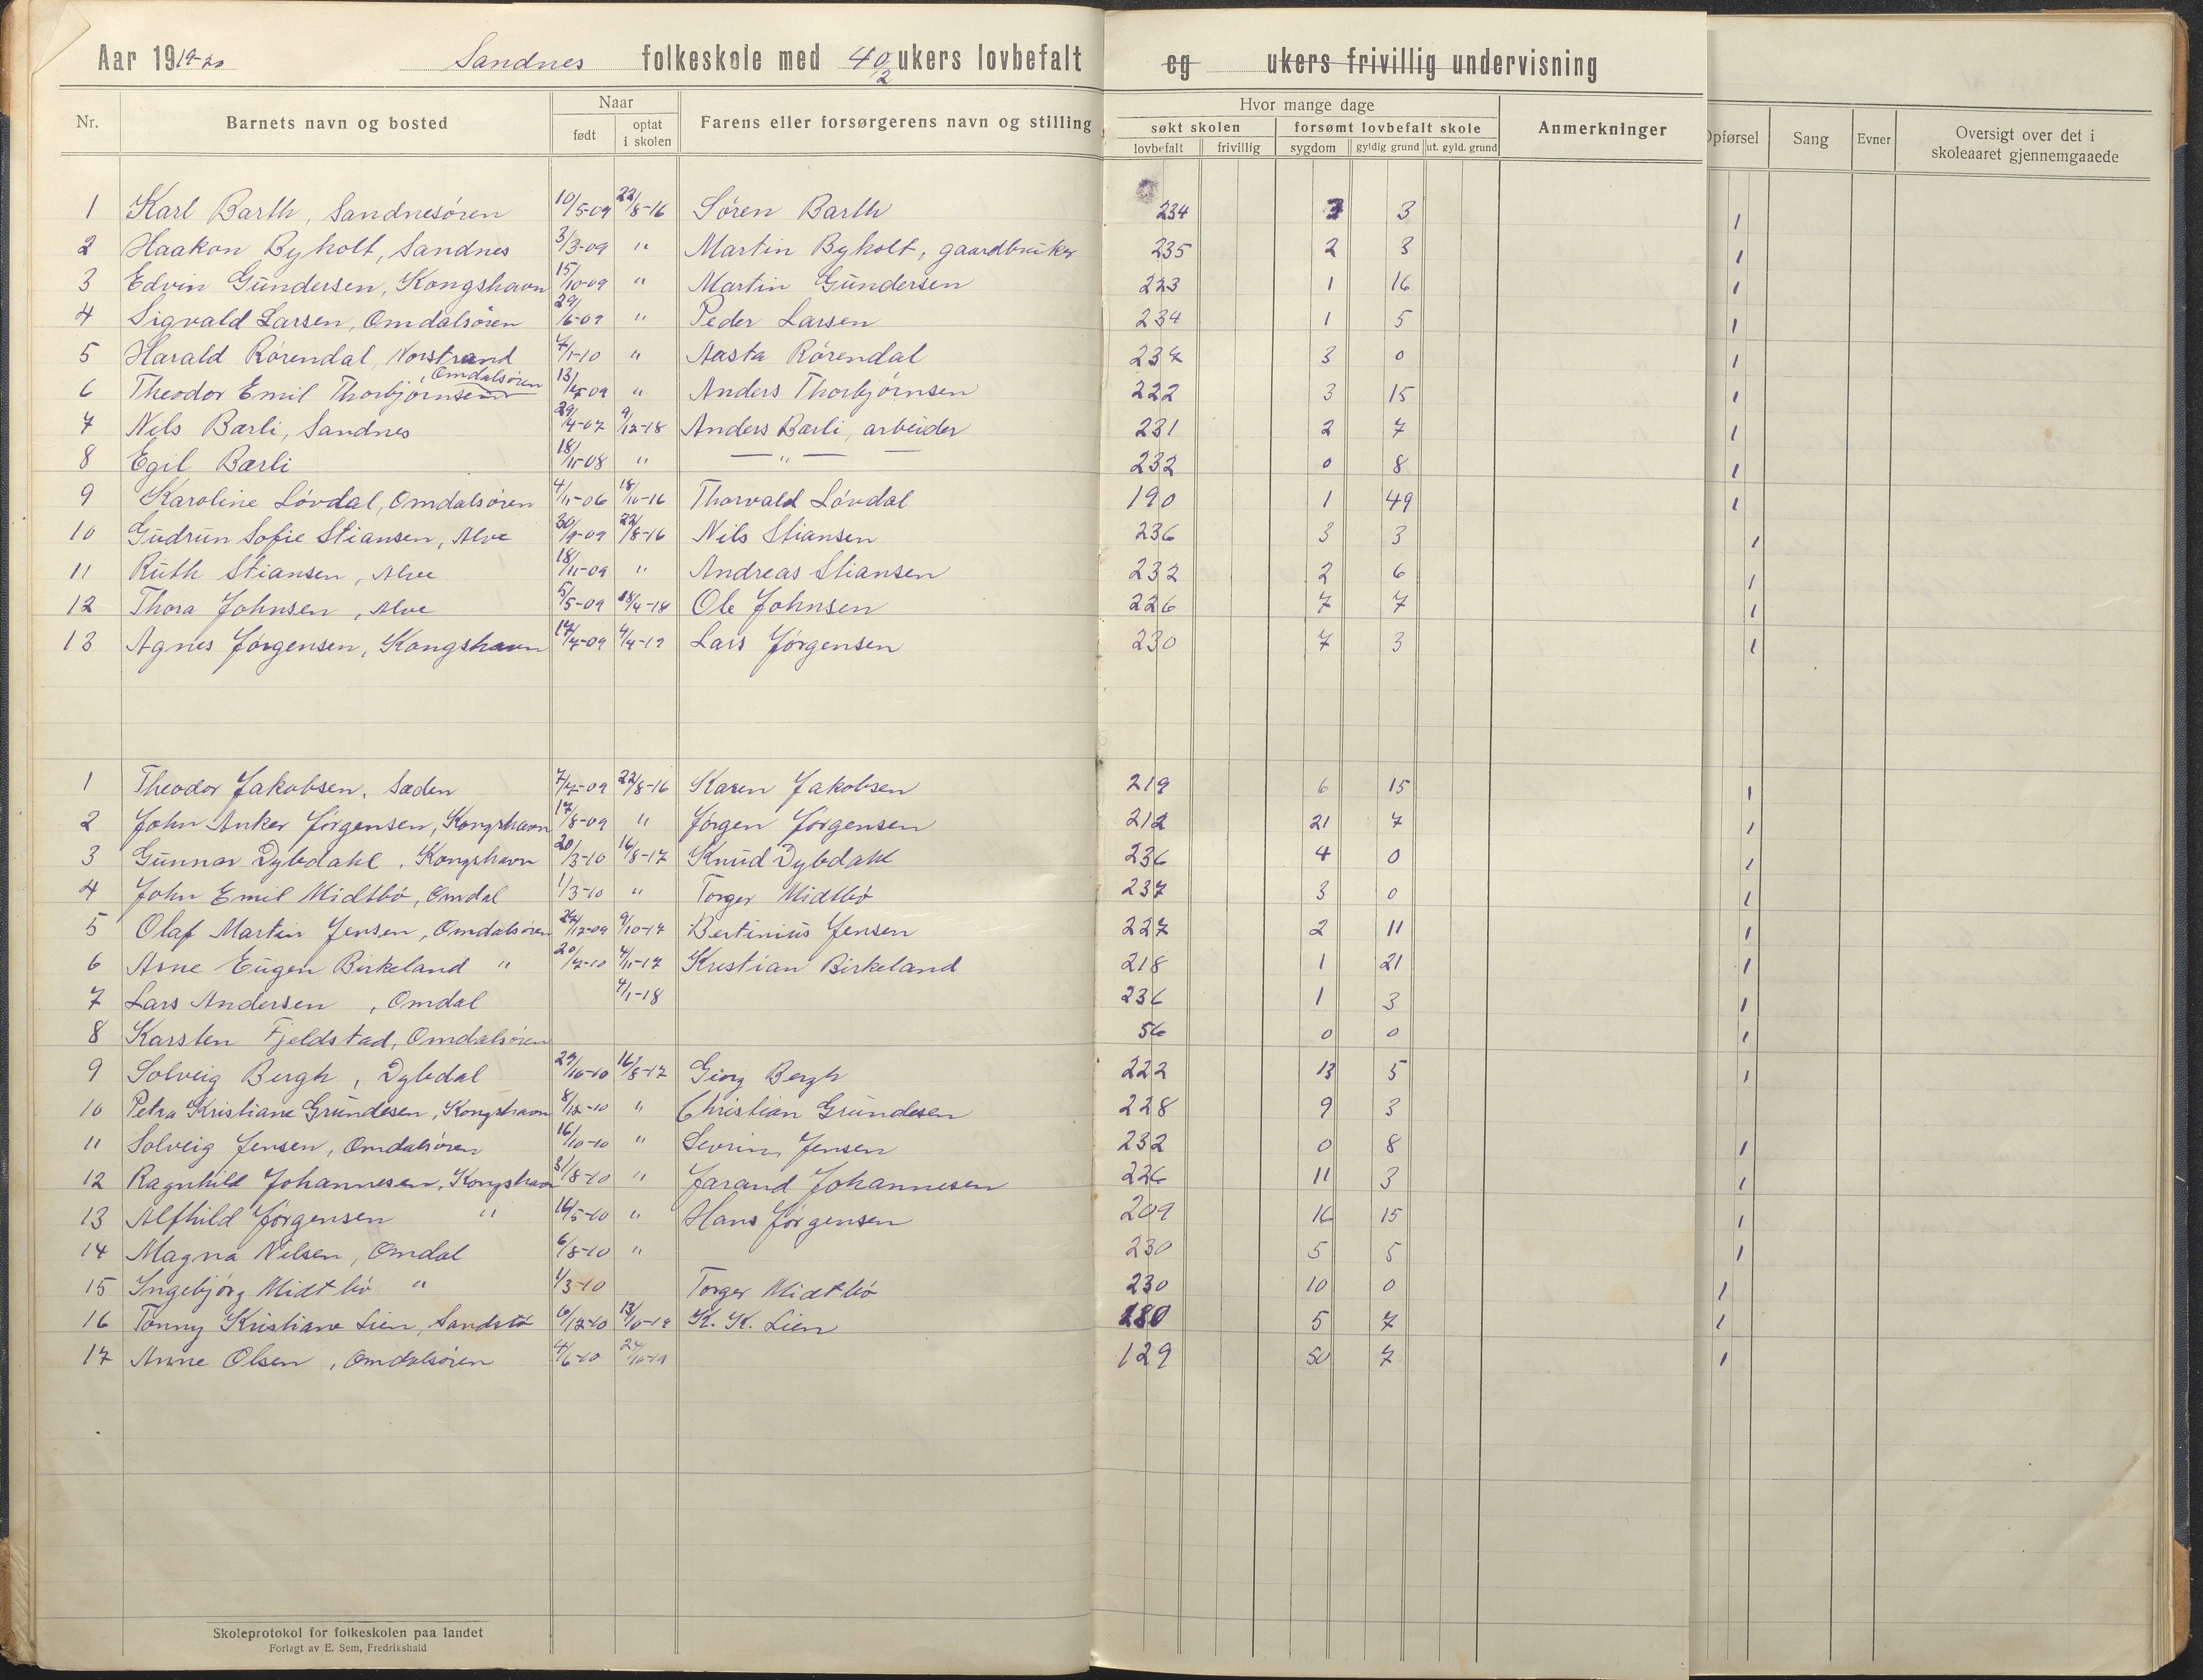 Aar 1919-20 Sandnes folkeskole med 40/2 ukers lovbefalt og ukers frivillig undervisning
Nr. Barnets navn og bosted Naar født optat i skolen Farens eller forsørgerens navn og stilling Hvor mange dage søkt skolen lovbefalt frivillig forsømt lovbefalt skole sygdom gyldig grund ut. gyld. grund Anmerkninger Opførsel Sang Evner Oversigt over det i skoleaaret gjennemgaaede
1 Karl Barth, Sandnesøren 10/5-09 22/8-16 Søren Barth 234 3 3 1
2 Haakon Byholt, Sandnes 3/3-09 " Martin Byholt, gaardbruker 235 2 3 1
3 Edvin Gundersen, Kongshavn 15/10-09 " Martin Gundersen 223 1 16 1
4 Sigvald Larsen, Omdalsøren 29/6-09 " Peder Larsen 234 1 5 1
5 Harald Rørendal, Norstrand 4/1-10 " Aasta Rørendal 237 3 0 1
6 Theodor Emil Thorbjørnsen, Omdalsøren " Anders Thorbjørnsen 222 3 15 1
7 Nils Barli, Sandnes 29/4-07 9/12-18 Anders Barli, arbeider 231 2 7 1
8 Egil Barli 18/11-08 " — " — 232 0 8 1
9 Karoline Løvdal, Omdalsøren 4/11-06 18/10-16 Thorvald Løvdal 190 1 49 1
10 Gudrun Sofie Stiansen, Alve 30/9-09 22/8-16 Nils Stiansen 236 3 3 1
11 Ruth Stiansen, Alve 18/11-09 " Andreas Stiansen 232 2 6 1
12 Thora Johnsen, Alve 5/5-09 18/4-18 Ole Johnsen 226 7 7 1
13 Agnes Jørgensen, Kongshavn 17/7-09 4/4-19 Lars Jørgensen 230 7 3 1
1 Theodor Jakobsen, Sæden 7/7-09 22/8-16 Karen Jakobsen 219 6 15 1
2 John Anker Jørgensen, Kongshavn 17/8-09 " Jørgen Jørgensen 212 21 7 1
3 Gunnar Dybdahl, Kongshavn 20/3-10 16/8-17 Knud Dybdahl 236 4 0 1
4 John Emil Midtbø, Omdal 1/3-10 " Torger Midtbø 237 3 0 1
5 Olaf Martin Jensen, Omdalsøren 9/10-17 Bertinius Jensen 227 2 11 1
6 Arne Eugen Birkeland " 20/7-10 4/11-17 Kristian Birkeland 218 1 21 1
7 Lars Andersen, Omdal 4/1-18 236 1 3 1
8 Karsten Fjeldstad, Omdalsøren 56 0 0 1
9 Solveig Bergh, Dybdal 29/10-10 16/8-17 Georg Bergh 222 13 5 1
10 Petra Kristiane Grundesen, Kongshavn 8/12-10 " Christian Grundesen 228 9 3
11 Solveig Jensen, Omdalsøren 16/10-10 " Severin Jensen 232 0 8 1
12 Ragnhild Johannesen, Kongshavn 31/8-10 " Jarand Johannesen 226 11 3 1
13 Alfhild Jørgensen " 16/5-10 " Hans Jørgensen 209 16 15 1
14 Magna Nilsen, Omdal 6/8-10 " 230 5 5 1
15 Ingebjørg Midtbø " 1/3-10 Torger Midtbø 230 10 0 1
16 Tonny Kristiane Lien, Sandstø 6/12-10 K. K. Lien 180 5 7 1
17 Anne Olsen, Omdalsøren 4/6-10 129 50 7 1
Skoleprotokol for folkeskolen paa landet
Forlagt av E. Sem, Fredrikshald